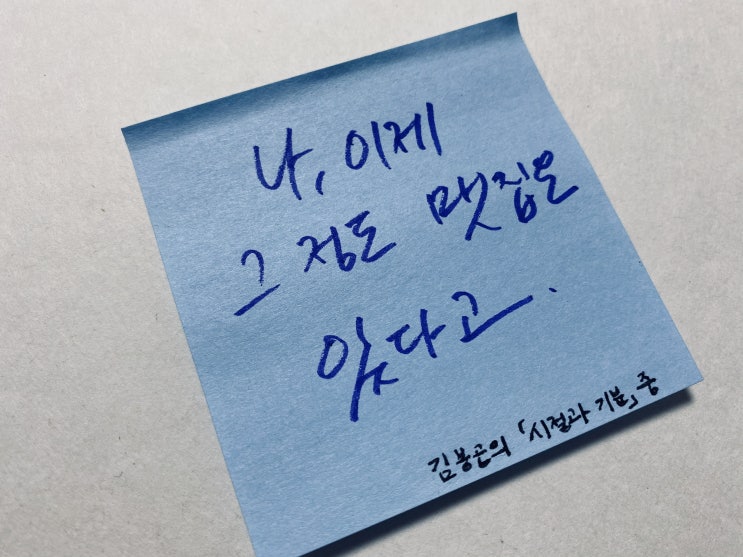 나, 이제
그 정도 맷집은
있다고.
김봉곤의 「시절과 기분」 중